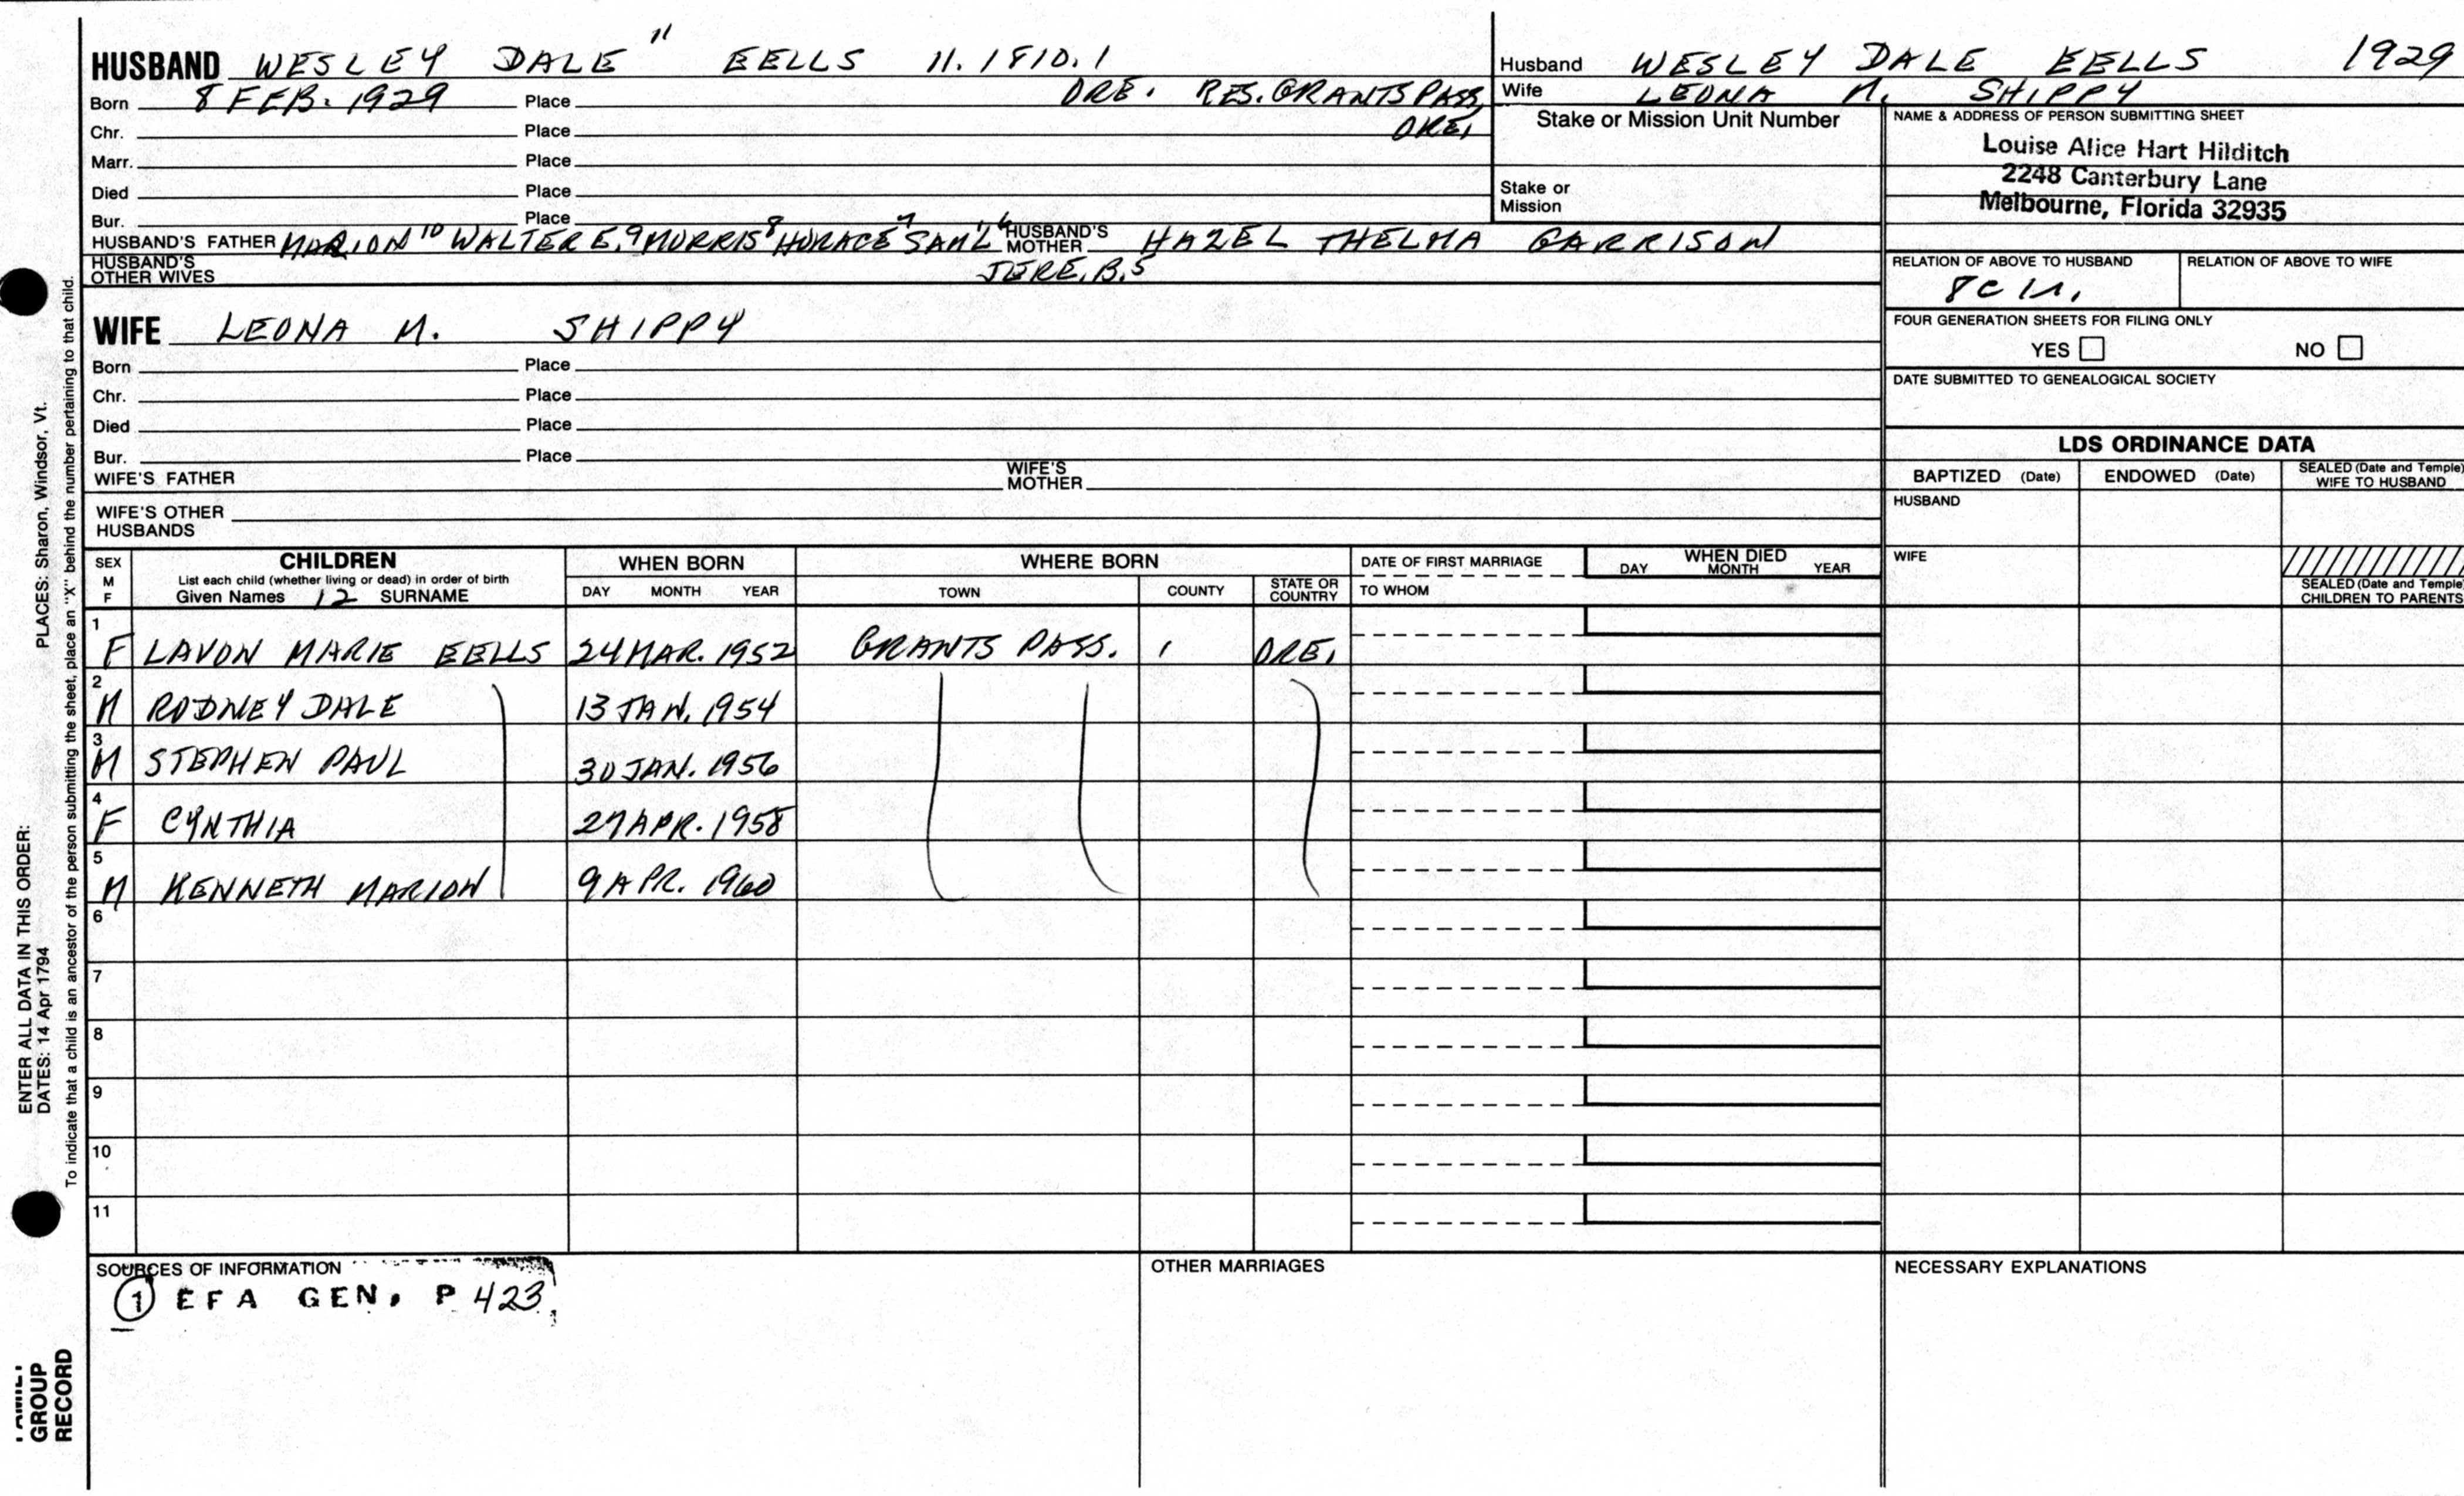 HUSBAND WESLEY DALE 11 EELLS 11.1810.1
Born 8 FEB. 1929 Place ORE. RES. GRANTS PASS,
Chr. Place ORE,
Marr. Place
Died Place
Bur. Place
HUSBAND'S FATHER MARION 10 WALTER E. 9 MORRIS 8 HORACE 7 SAM'L 6 HUSBAND'S MOTHER HAZEL THELMA GARRISON
HUSBAND'S OTHER WIVES JERE. B. 5
Husband WESLEY DALE EELLS 1929
Wife LEONA M. SHIPPY
Stake or Mission Unit Number
Stake or
Mission
NAME & ADDRESS OF PERSON SUBMITTING SHEET
Louise Alice Hart Hilditch
2248 Canterbury Lane
Melbourne, Florida 32935
RELATION OF ABOVE TO HUSBAND RELATION OF ABOVE TO WIFE
8C
FOUR GENERATION SHEETS FOR FILING ONLY
YES NO
DATE SUBMITTED TO GENEALOGICAL SOCIETY
WIFE LEONA M. SHIPPY
Born Place
Chr. Place
Died Place
Bur. Place
WIFE'S FATHER WIFE'S MOTHER
WIFE'S OTHER
HUSBANDS
LDS ORDINANCE DATA
BAPTIZED (Date) ENDOWED (Date) SEALED (Date and Temple) WIFE TO HUSBAND
HUSBAND
WIFE
SEALED (Date and Temple)
CHILDREN TO PARENTS
SEX M F CHILDREN WHEN BORN WHERE BORN DATE OF FIRST MARRIAGE WHEN DIED
List each child (whether living or dead) in order of birth
Given Names 12 SURNAME DAY MONTH YEAR TOWN COUNTY STATE OR COUNTRY TO WHOM DAY MONTH YEAR
1 F LAVON MARIE EELLS 24 MAR. 1952 GRANTS PASS. , ORE,
2 M RODNEY DALE 13 JAN. 1954
3 M STEPHEN PAUL 30 JAN. 1956
4 F CYNTHIA 27 APR. 1958
5 M KENNETH MARION 9 APR. 1960
6
7
8
9
10
11
SOURCES OF INFORMATION
1 EFA GEN. P 423
OTHER MARRIAGES
NECESSARY EXPLANATIONS
ENTER ALL DATA IN THIS ORDER:
DATES: 14 Apr 1794 PLACES: Sharon, Windsor, Vt.
To indicate that a child is an ancestor of the person submitting the sheet, place an "X" behind the number pertaining to that child.
GROUP
RECORD